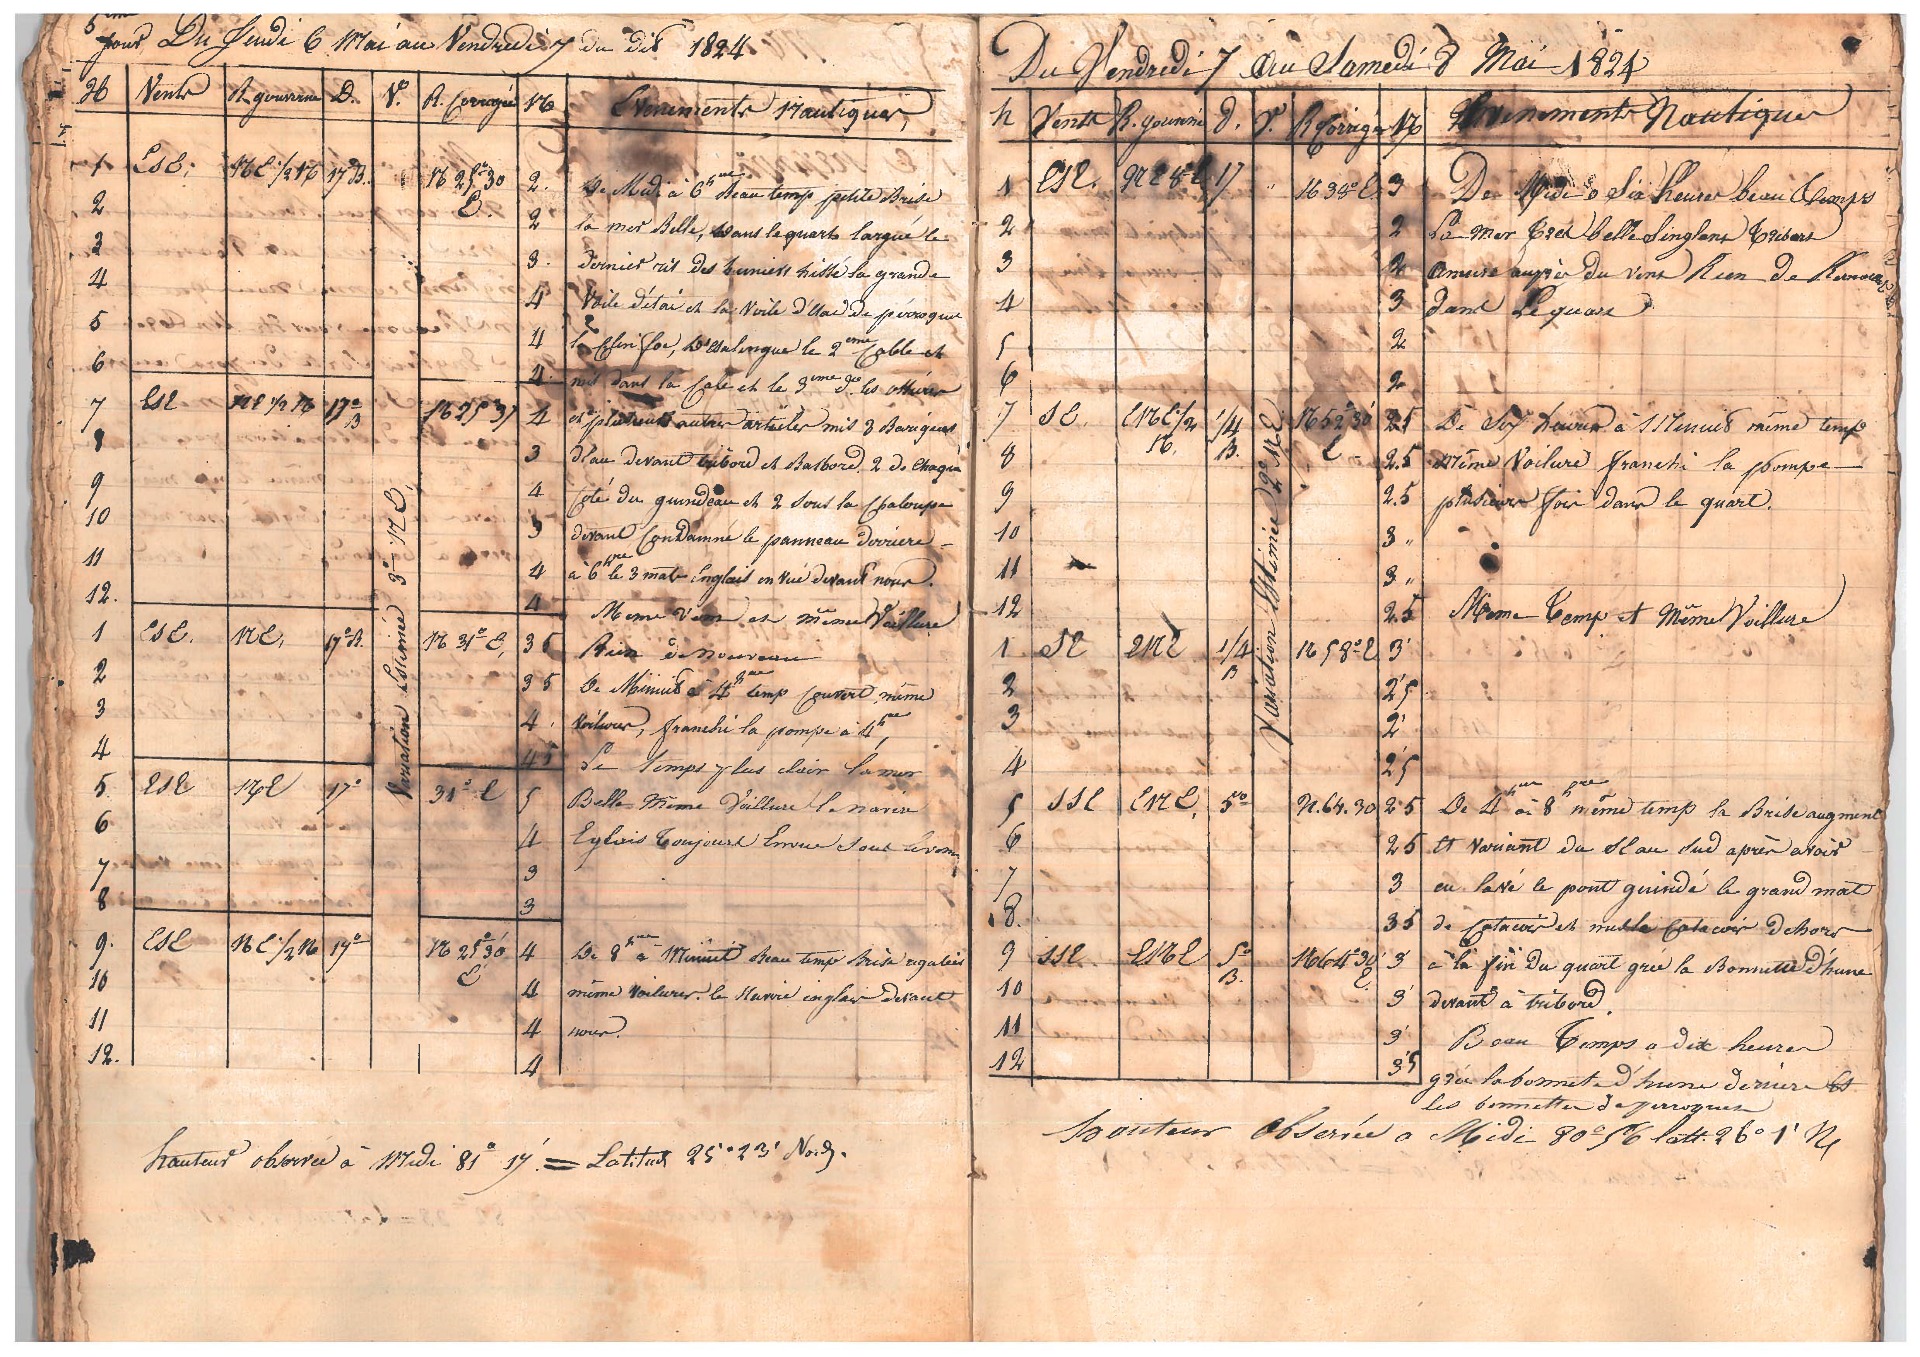 5eme
jour Du Jeudi 6 Mai au Vendredi 7 du dit 1824
H Vents R. gouverné D. Vn. R. Corrigée N Evenements Nautiques,
1 ESE. NE 1/2 N 17° B. N 25° 30 2. De Midi à 6 hres Beau temp petite Brise
E.
2 2 la mer Belle, dans le quart largué le
3 3. dernier ris des huniers hissé la grande
4 4 Voile d'étai et la Voile d'étai de péroquet
5 4 le Clin foc, Détalingué le 2eme Cable et
6 4. mis dans la Cale et le 3eme do. les
7 ESE NE 1/2 N 17° B N 25° 37 4 et plusieurs autres articles mis 8 Bariques
8 3 d'Eau devant tribord et Basbord, 2 de Chaque
9 4 Coté du guindeau et 2 sous la Chaloupe
10 3 devant Condamné le panneau derriere
11 4 à 6 hre le 3 mats Englais en vue devant nous.
12. 4 Meme Vent et même Voillure
1 ESE. NE. 17° B. N 31° E. 3 5 Rien de nouveau
2 3 5 De Minuit à 4 hres temp Couvert même
3 4. Voilures, franchi la pompe à 4 hres
4 4 5 Le temps plus clair la mer
5. ESE NE 17° 31° E 5 Belle Même Voillure le navire
6 4 Eglais Toujours Envue Sous
7 3
8 3
9. ESE NE 1/2 N 17° N 25° 30' 4 De 8 hres à Minuit Beau temp Brise
E
10 4 même Voilures. le Navire inglais devant
11 4 nous.
12. 4
Variation Estimée 3° NE.
hauteur observée à Midi 81° 17'. = Latitude 25° 23' Nord.
Du Vendredi 7 Au Samedi 8 Mai 1824
h Vents R. gouverné d. V. R Corrigé N Evenements Nautique
1 ESE. NE 8° E 17 " N 38° E. 3 De Midi a Six heures beau Temps
2 2 La mer Tres belle Tribort
3 2 amure auprès du vent Rien de
4 3 dans Le quart
5 2
6 2
7 SE. ENE 1/2 1/4 N 52° 30' 2.5 De Six heures à Minuit même temp
N. B. E
8 2.5 Même Voilure franchi la pompe
9 2.5 plusieurs fois dans le quart.
10 3 "
11 3 "
12 2.5 Meme Temp et Même Voillure
1 SE ENE 1/4 N 58° E 3'
B
2 2'5
3 2'
4 2'5
Variation Estimée 2° NE
5 SSE ENE. 5° N. 64. 30 2 5 De 4 hres à 8 hres même temp la Brise augment
6 2 5 Et variant du SE au Sud après avoir
7 3 eu lavé le pont guindé le grand mat
8. 3 5 de Catacoir et mis le Catacoir dehors
9 SSE ENE 5° N 64° 30' 3' à la fin du quart gréé la Bonnette d'hune
B. E.
10 3' devant à tribord.
11 3' Beau Temps a dix heures
12 3'5 gréé la bonnette d'hune deriere et
les bonnettes de perroquets
hauteur Observée a Midi 80° 56 latt. 26° 1' N